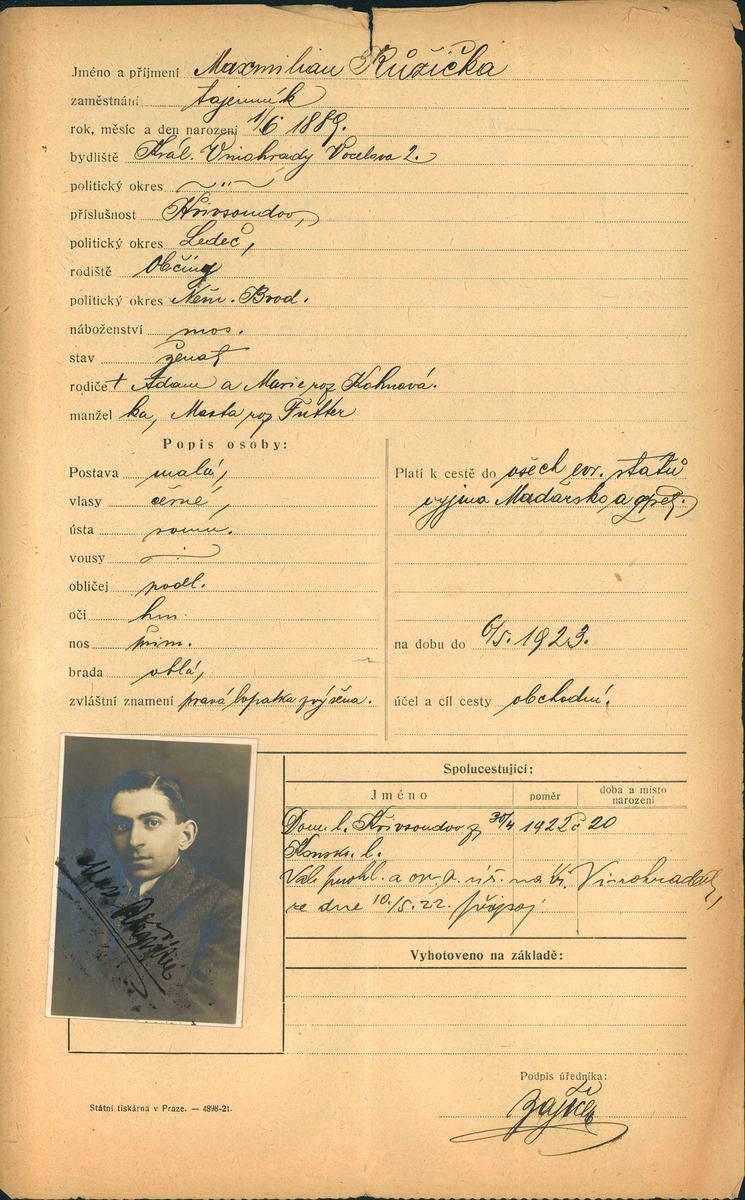 Jméno a příjmení Maxmilian Růžička
zaměstnání tajemník
rok, měsíc a den narození 1/6 1889.
bydliště Král. Vinohrady Vocelova 2.
politický okres — " —
příslušnost Křivsoudov,
politický okres Ledeč,
rodiště Občiny
politický okres Něm. Brod.
náboženství mos.
stav ženat
rodiče † Adam a Marie roz Kohnová.
manžel ka, Marta roz Futter
Popis osoby:
Postava malá,
vlasy černé,
ústa soum.
vousy
obličej podl.
oči hn.
nos přim.
brada oblá,
zvláštní znamení pravá lopatka zvýšena.
Platí k cestě do všech evr. států
vyjma Maďarsko a
na dobu do 6/5. 1923.
účel a cíl cesty obchodní.
Spolucestující:
Jméno poměr doba a místo narození
Dom. l. Křivsoudov z 30/4 1922 č 20
Konsk. l.
na Kr. Vinohradech,
ze dne 10./5. 22. připoj.
Vyhotoveno na základě:
Podpis úředníka:
Státní tiskárna v Praze. — 4898-21.